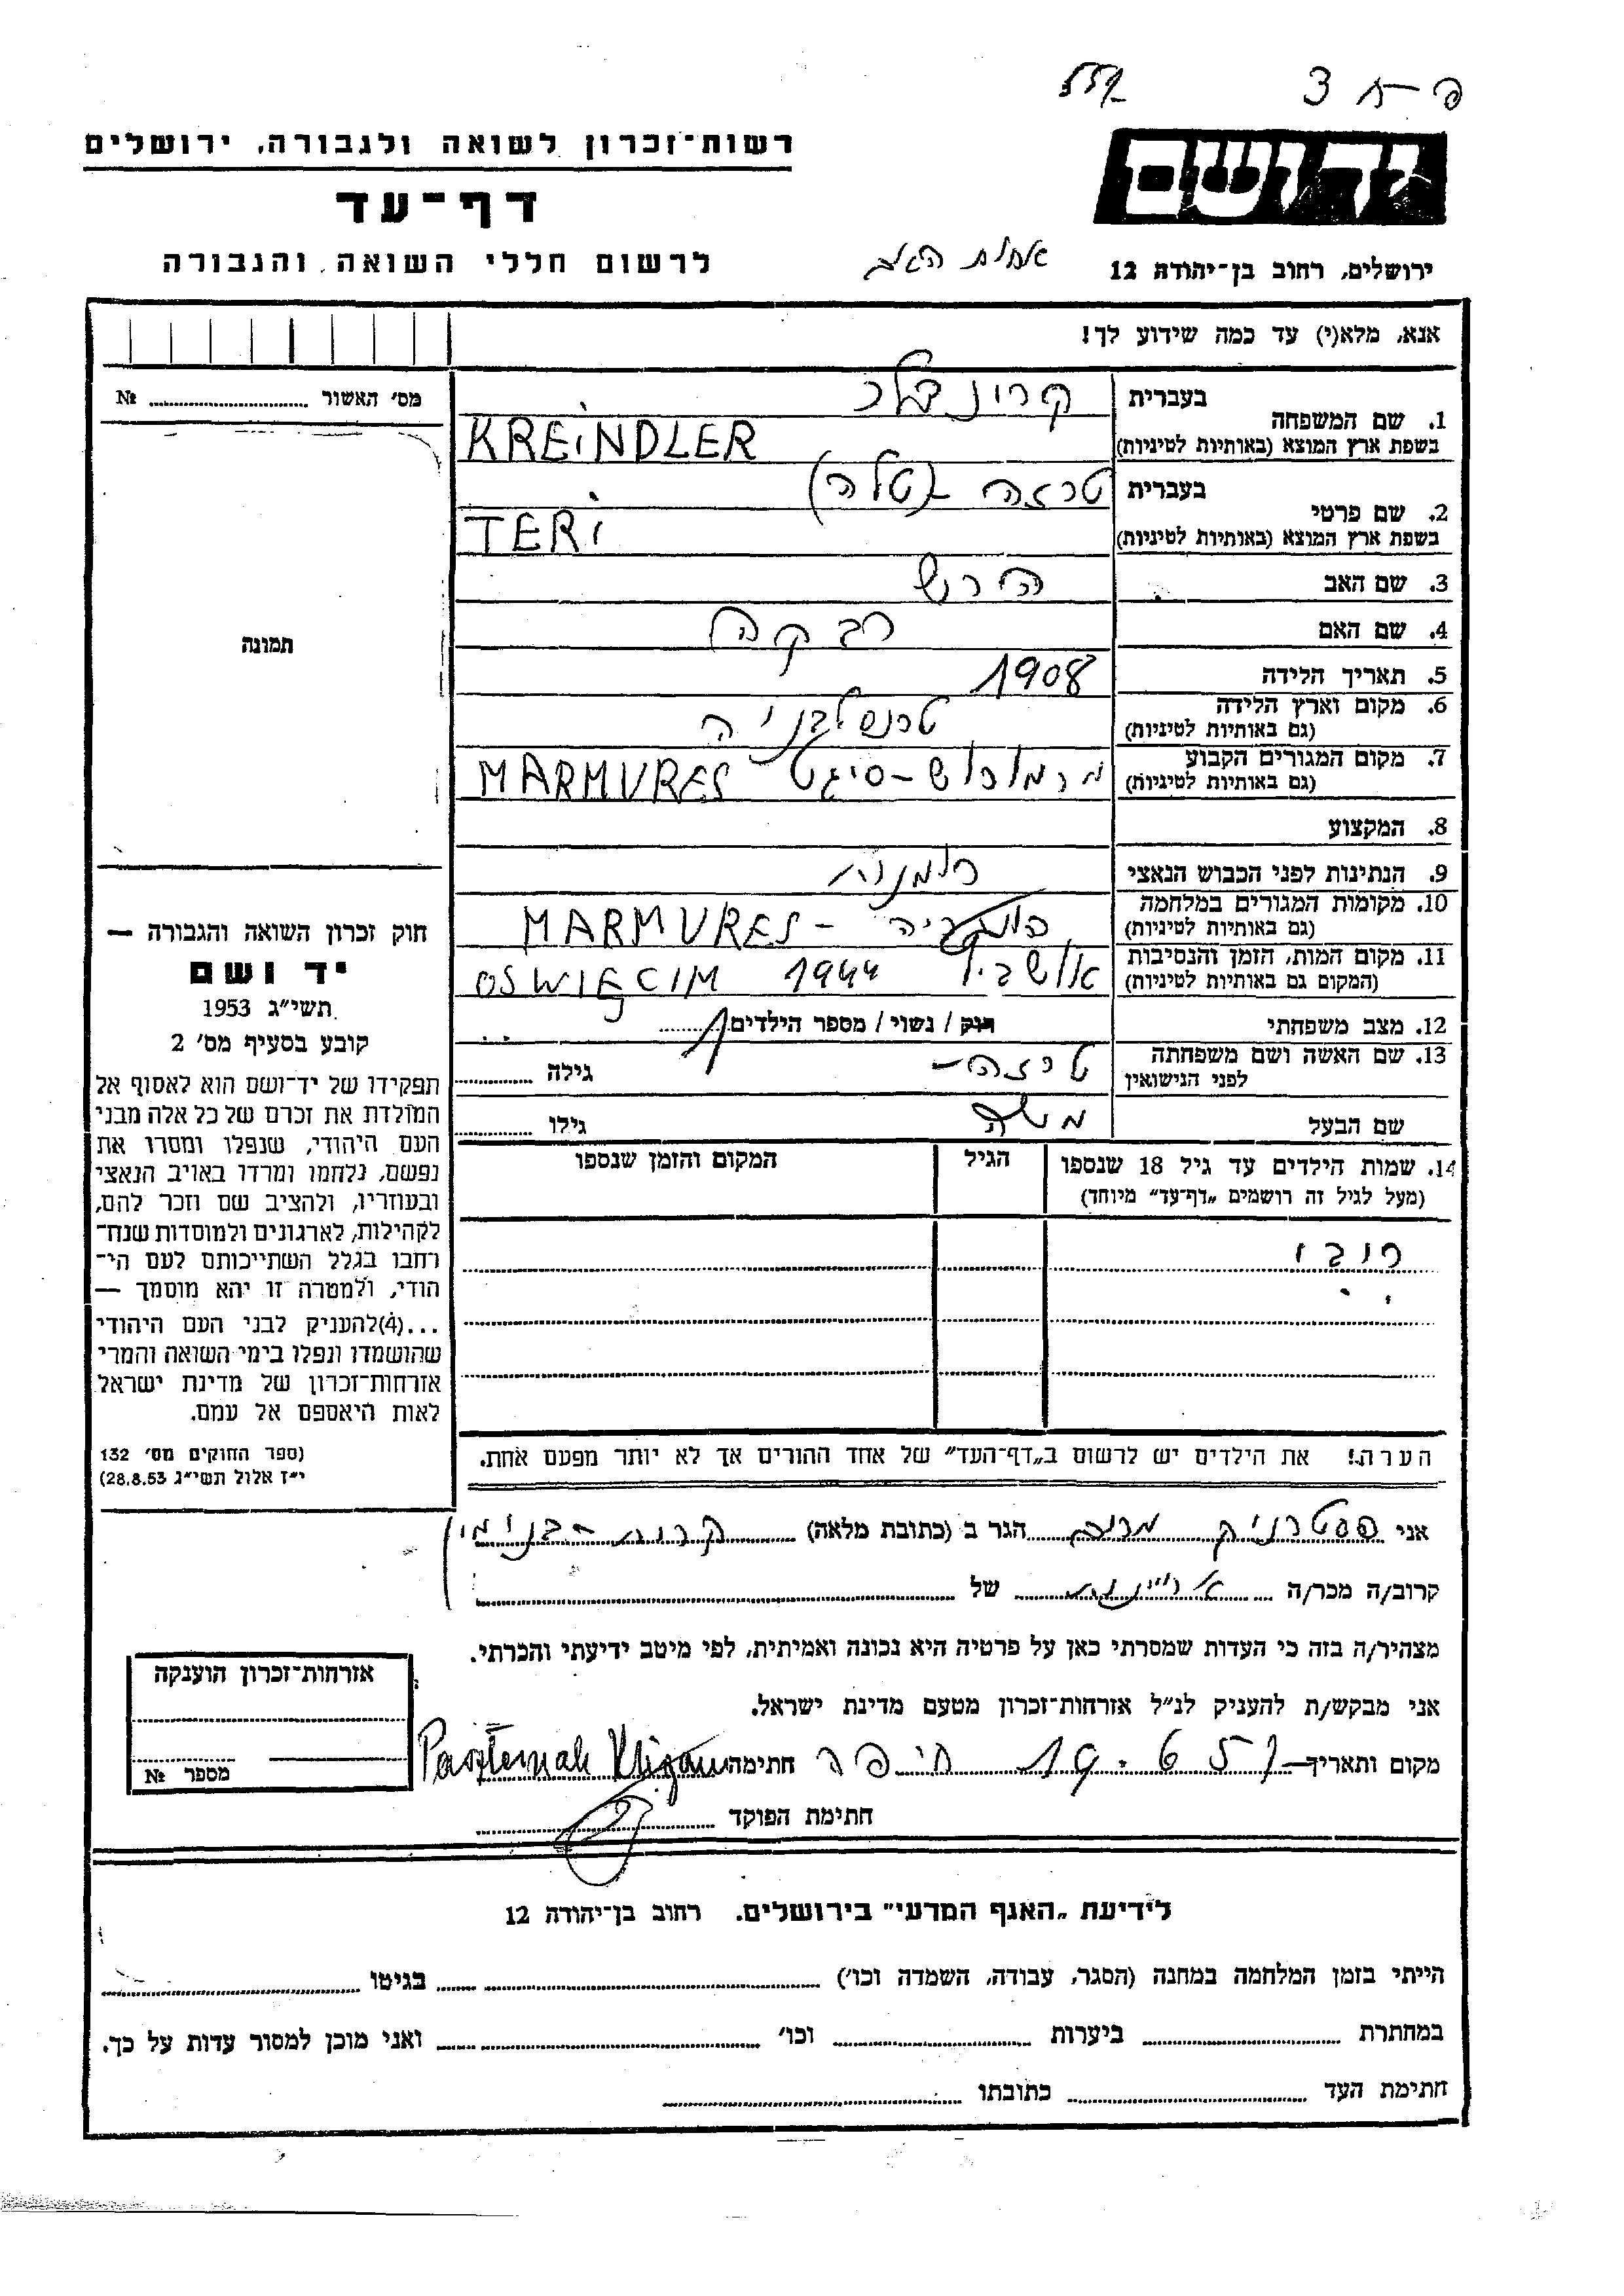 רשות-זכרון לשואה ולגבורה, ירושלים
דף-עד
לרשום חללי השואה והגבורה
יד ושם
ירושלים, רחוב בן-יהודה 12
אנא, מלא(י) עד כמה שידוע לך!
מס' האשור № 
1. שם המשפחה
בעברית
בשפת ארץ המוצא (באותיות לטיניות)
KREINDLER
2. שם פרטי
בעברית טרזה (טלה)
בשפת ארץ המוצא (באותיות לטיניות)
TERI
3. שם האב הירש
4. שם האם רבקה
5. תאריך הלידה 1908
6. מקום וארץ הלידה
(גם באותיות לטיניות) טרנסילבניה
7. מקום המגורים הקבוע
(גם באותיות לטיניות) סיגט MARMURES
8. המקצוע
9. הנתינות לפני הכבוש הנאצי
10. מקומות המגורים במלחמה
(גם באותיות לטיניות) MARMURES -
11. מקום המות, הזמן והנסיבות
(המקום גם באותיות לטיניות) אושביץ 1944 OSWIĘCIM
12. מצב משפחתי רוק / נשוי / מספר הילדים 1
13. שם האשה ושם משפחתה
לפני הנישואין טרזה - גילה
שם הבעל משה גילו
14. שמות הילדים עד גיל 18 שנספו
(מעל לגיל זה רושמים „דף-עד" מיוחד)
הגיל
המקום והזמן שנספו
תמונה
חוק זכרון השואה והגבורה —
יד ושם
תשי"ג 1953
קובע בסעיף מס' 2
תפקידו של יד-ושם הוא לאסוף אל
המולדת את זכרם של כל אלה מבני
העם היהודי, שנפלו ומסרו את
נפשם, נלחמו ומרדו באויב הנאצי
ובעוזריו, ולהציב שם וזכר להם,
לקהילות, לארגונים ולמוסדות שנח-
רחבו בגלל השתייכותם לעם הי-
הודי, ולמטרה זו יהא מוסמך —
...(4)להעניק לבני העם היהודי
שהושמדו ונפלו בימי השואה והמרי
אזרחות-זכרון של מדינת ישראל
לאות היאספם אל עמם.
(ספר החוקים מס' 132
י"ז אלול תשי"ג 28.8.53)
הערה! את הילדים יש לרשום ב„דף-העד" של אחד ההורים אך לא יותר מפעם אחת.
אני פסטרניק מרים הגר ב (כתובת מלאה) קרית בנימין
קרוב/ה מכר/ה של
מצהיר/ה בזה כי העדות שמסרתי כאן על פרטיה היא נכונה ואמיתית, לפי מיטב ידיעתי והכרתי.
אני מבקש/ת להעניק לנ"ל אזרחות-זכרון מטעם מדינת ישראל.
מקום ותאריך חיפה חתימה Paszternak
חתימת הפוקד
אזרחות-זכרון הוענקה
מספר №
לידיעת „האגף המדעי" בירושלים. רחוב בן-יהודה 12
הייתי בזמן המלחמה במחנה (הסגר, עבודה, השמדה וכו') בגיטו
במחתרת ביערות וכו' ואני מוכן למסור עדות על כך.
חתימת העד כתובתו